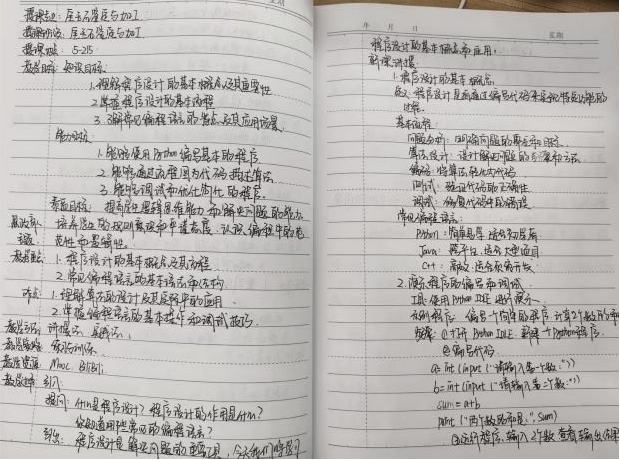 授课专业: 宝玉石鉴定与加工
授课班级: 宝玉石鉴定与加工
授课地点: 5-215
教学目标: 知识目标:
1.理解程序设计的基本概念及其重要性
2.掌握程序设计的基本流程
3.了解常见编程语言的特点及其应用场景
能力目标:
1.能够使用Python编写基本的程序
2.能够通过流程图与代码描述算法
3.能够调试和优化简单的程序
素养目标: 提高学生逻辑思维能力和解决问题的能力
培养学生的规则意识和严谨态度, 认识编程中的规
范性和逻辑性.
教学重点: 1.程序设计的基本概念及其流程
2.常见编程语言的基本语法和结构
难点: 1.理解算法的设计及其在程序中的应用
2.掌握编程语言的基本操作和调试技巧.
教学方法: 讲授法、实践法、
教学策略: 实验训练
教学资源: Mooc BiliBili
教学过程: 引入
提问: 什么是程序设计? 程序设计的作用是什么?
你知道哪些常见的编程语言?
导出: 程序设计是解决问题的重要工具, 今天我们将学习
年 月 日 星期
程序设计的基本概念和应用.
新课讲授:
1.程序设计的基本概念
定义: 程序设计是通过编写代码来实现特定功能的
过程.
基本流程:
问题分析: 明确问题的要求和目标.
算法设计: 设计解决问题的步骤和方法.
编码: 将算法转化为代码
测试: 验证代码的正确性
调试: 修复代码中的错误
常见编程语言:
Python: 简单易学, 适合初学者
Java: 跨平台, 适合大型项目
C++: 高效, 适合系统开发
2.演示程序的编写和调试
工具: 使用Python IDLE 进行演示.
示例程序: 编写一个简单的程序, 计算2个数的和
步骤: ①打开Python IDLE. 新建一个Python程序.
②编写代码
a=int(input("请输入第一个数:"))
b=int(input("请输入第二个数:"))
sum=a+b
print("两个数的和是:", sum)
③运行程序, 输入2个数, 查看输出结果